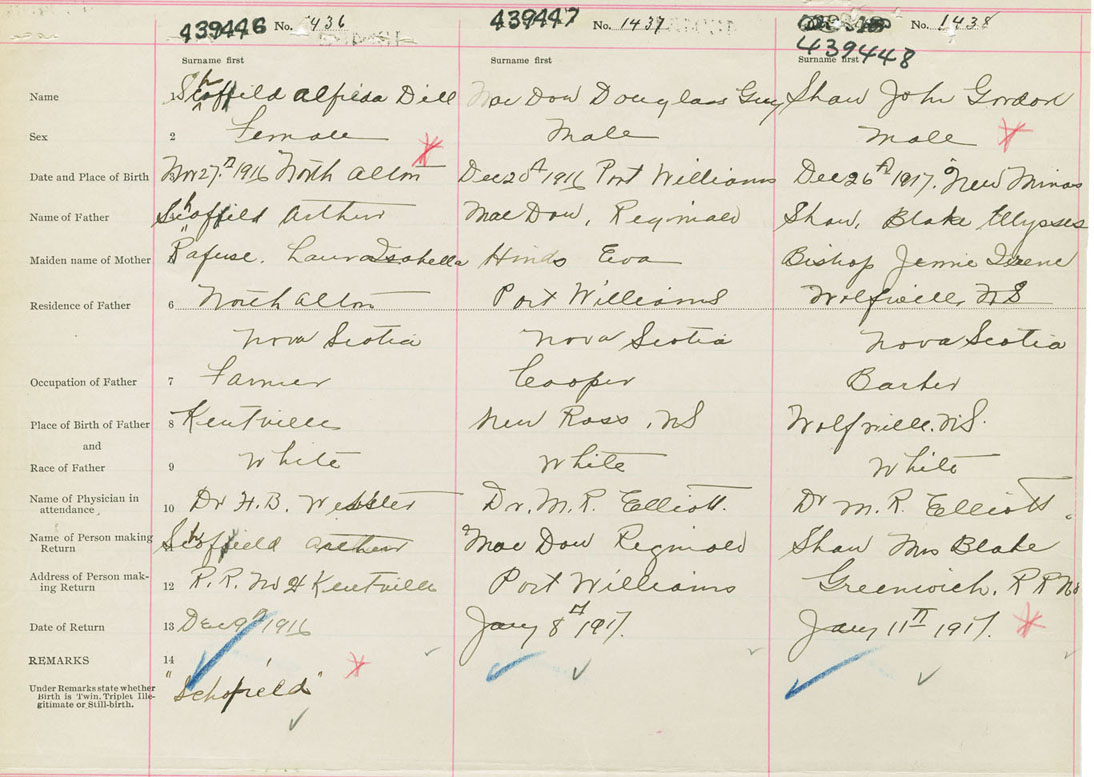 439446 No. 1436 439447 No. 1437 No. 1438
439448
Surname first Surname first Surname first
Name 1 Schofield Alfreda Dill Mac Dow Douglass Guy Shaw John Gordon
Sex 2 Female Male Male
Date and Place of Birth Nov 27th 1916 North Alton Dec 20th 1916 Port Williams Dec 26th 1917. New Minas
Name of Father Schofield Arthur Mac Dow, Reginald Shaw, Blake Ulysses
Maiden name of Mother Rafuse. Laura Isabella Hinds Eva Bishop Jennie Irene
Residence of Father 6 North Alton Port Williams Wolfville, NS
Nova Scotia Nova Scotia Nova Scotia
Occupation of Father 7 Farmer Cooper Barber
Place of Birth of Father 8 Kentville New Ross, NS Wolfville. NS.
and
Race of Father 9 White White White
Name of Physician in
attendance 10 Dr H. B. Webster Dr. M. R. Elliott. Dr M. R. Elliott.
Name of Person making
Return Schofield Arthur Mac Dow Reginald Shaw Mrs Blake
Address of Person mak-
ing Return 12 R. R. No 4 Kentville Port Williams Greenwich, R R No
Date of Return 13 Dec 9th 1916 Jany 8th 1917. Jany 11th 1917.
REMARKS 14
Under Remarks state whether
Birth is Twin, Triplet Ille-
gitimate or Still-birth.
"Schofield"